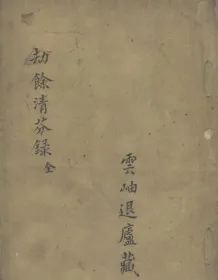 劫餘清芬録 全
雲岫退廬藏